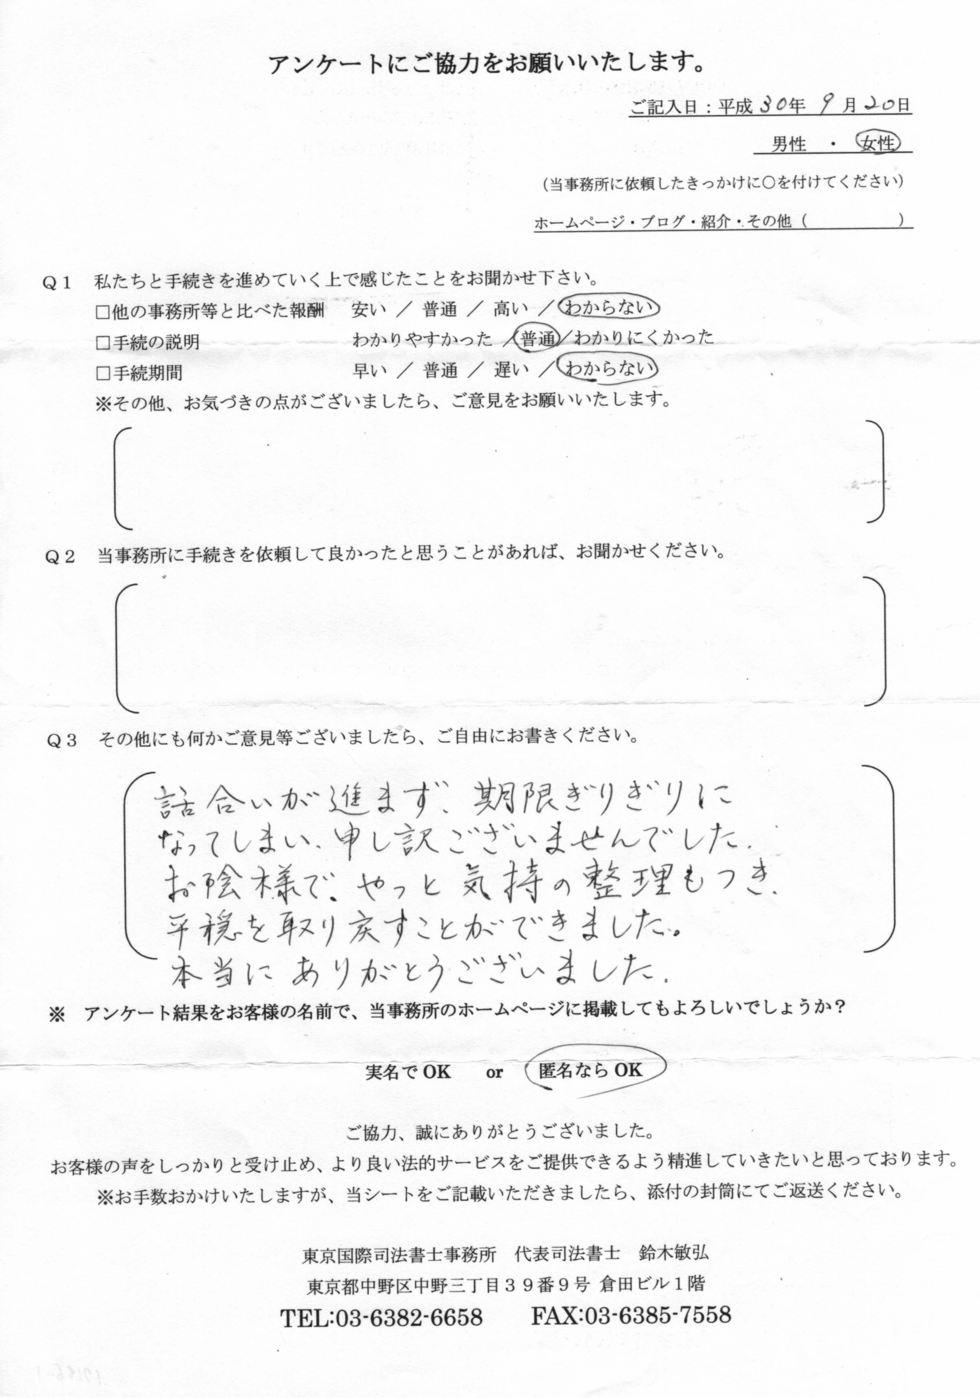 アンケートにご協力をお願いいたします。
ご記入日：平成30年 9月20日
男性 ・ 女性
（当事務所に依頼したきっかけに○を付けてください）
ホームページ・ブログ・紹介・その他（　　　　　）
Q1 私たちと手続きを進めていく上で感じたことをお聞かせ下さい。
□他の事務所等と比べた報酬 安い ／ 普通 ／ 高い ／わからない
□手続の説明 わかりやすかった ／普通／わかりにくかった
□手続期間 早い ／ 普通 ／ 遅い ／わからない
※その他、お気づきの点がございましたら、ご意見をお願いいたします。
Q2 当事務所に手続きを依頼して良かったと思うことがあれば、お聞かせください。
Q3 その他にも何かご意見等ございましたら、ご自由にお書きください。
話合いが進まず、期限ぎりぎりに
なってしまい、申し訳ございませんでした。
お陰様で、やっと気持の整理もつき、
平穏を取り戻すことができました。
本当にありがとうございました。
※ アンケート結果をお客様の名前で、当事務所のホームページに掲載してもよろしいでしょうか？
実名でOK or 匿名ならOK
ご協力、誠にありがとうございました。
お客様の声をしっかりと受け止め、より良い法的サービスをご提供できるよう精進していきたいと思っております。
※お手数おかけいたしますが、当シートをご記載いただきましたら、添付の封筒にてご返送ください。
東京国際司法書士事務所 代表司法書士 鈴木敏弘
東京都中野区中野三丁目３９番９号 倉田ビル１階
TEL:03-6382-6658 FAX:03-6385-7558